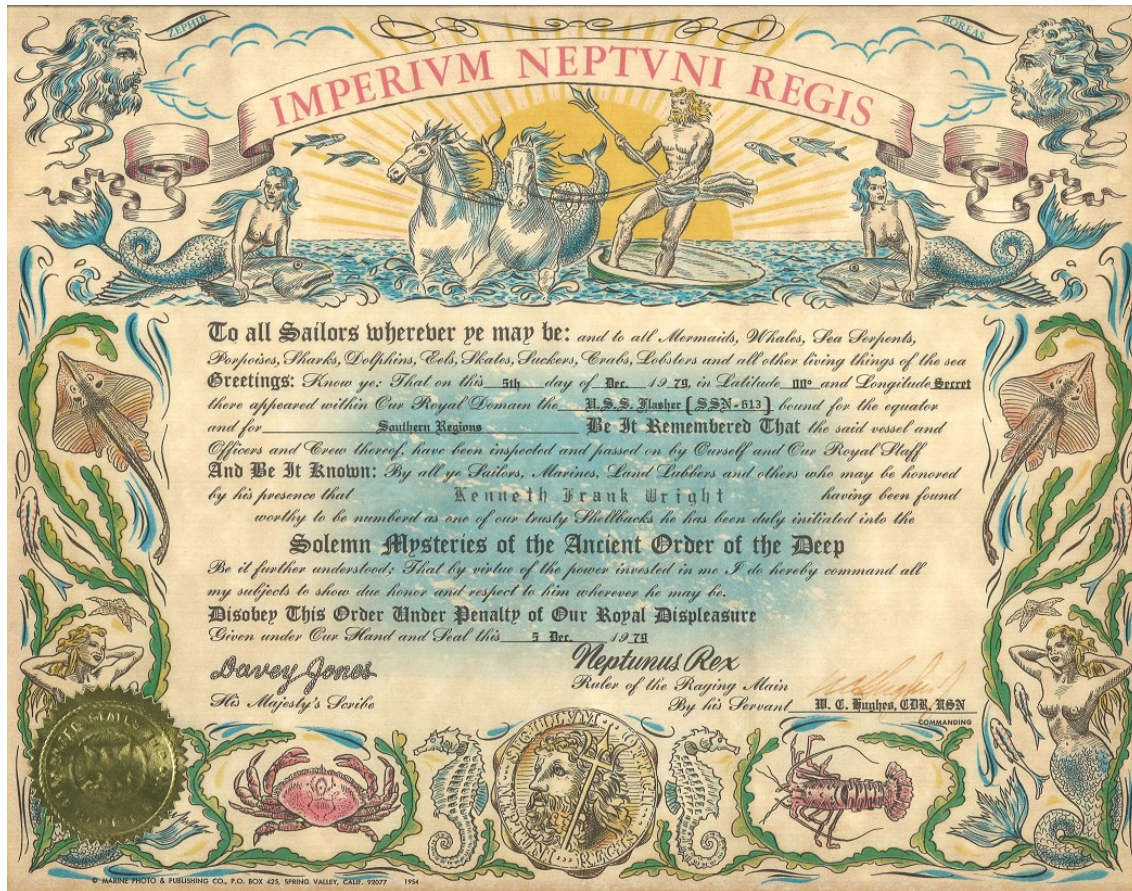 ZEPHIR
BOREAS
IMPERIVM NEPTVNI REGIS
To all Sailors wherever ye may be: and to all Mermaids, Whales, Sea Serpents,
Porpoises, Sharks, Dolphins, Eels, Skates, Suckers, Crabs, Lobsters and all other living things of the sea
Greetings: Know ye: That on this 5th day of Dec. 1979, in Latitude 00° and Longitude Secret
there appeared within Our Royal Domain the U.S.S. Flasher [SSN-613] bound for the equator
and for Southern Regions Be It Remembered That the said vessel and
Officers and Crew thereof, have been inspected and passed on by Ourself and Our Royal Staff
And Be It Known: By all ye Sailors, Marines, Land Lubbers and others who may be honored
by his presence that Kenneth Frank Wright having been found
worthy to be numberd as one of our trusty Shellbacks he has been duly initiated into the
Solemn Mysteries of the Ancient Order of the Deep
Be it further understood; That by virtue of the power invested in me I do hereby command all
my subjects to show due honor and respect to him wherever he may be.
Disobey This Order Under Penalty of Our Royal Displeasure
Given under Our Hand and Seal this 5 Dec. 1979
Davey Jones
Neptunus Rex
His Majesty's Scribe
Ruler of the Raging Main
By his Servant W. C. Hughes, CDR, USN
COMMANDING
© MARINE PHOTO & PUBLISHING CO., P.O. BOX 425, SPRING VALLEY, CALIF. 92077 1954